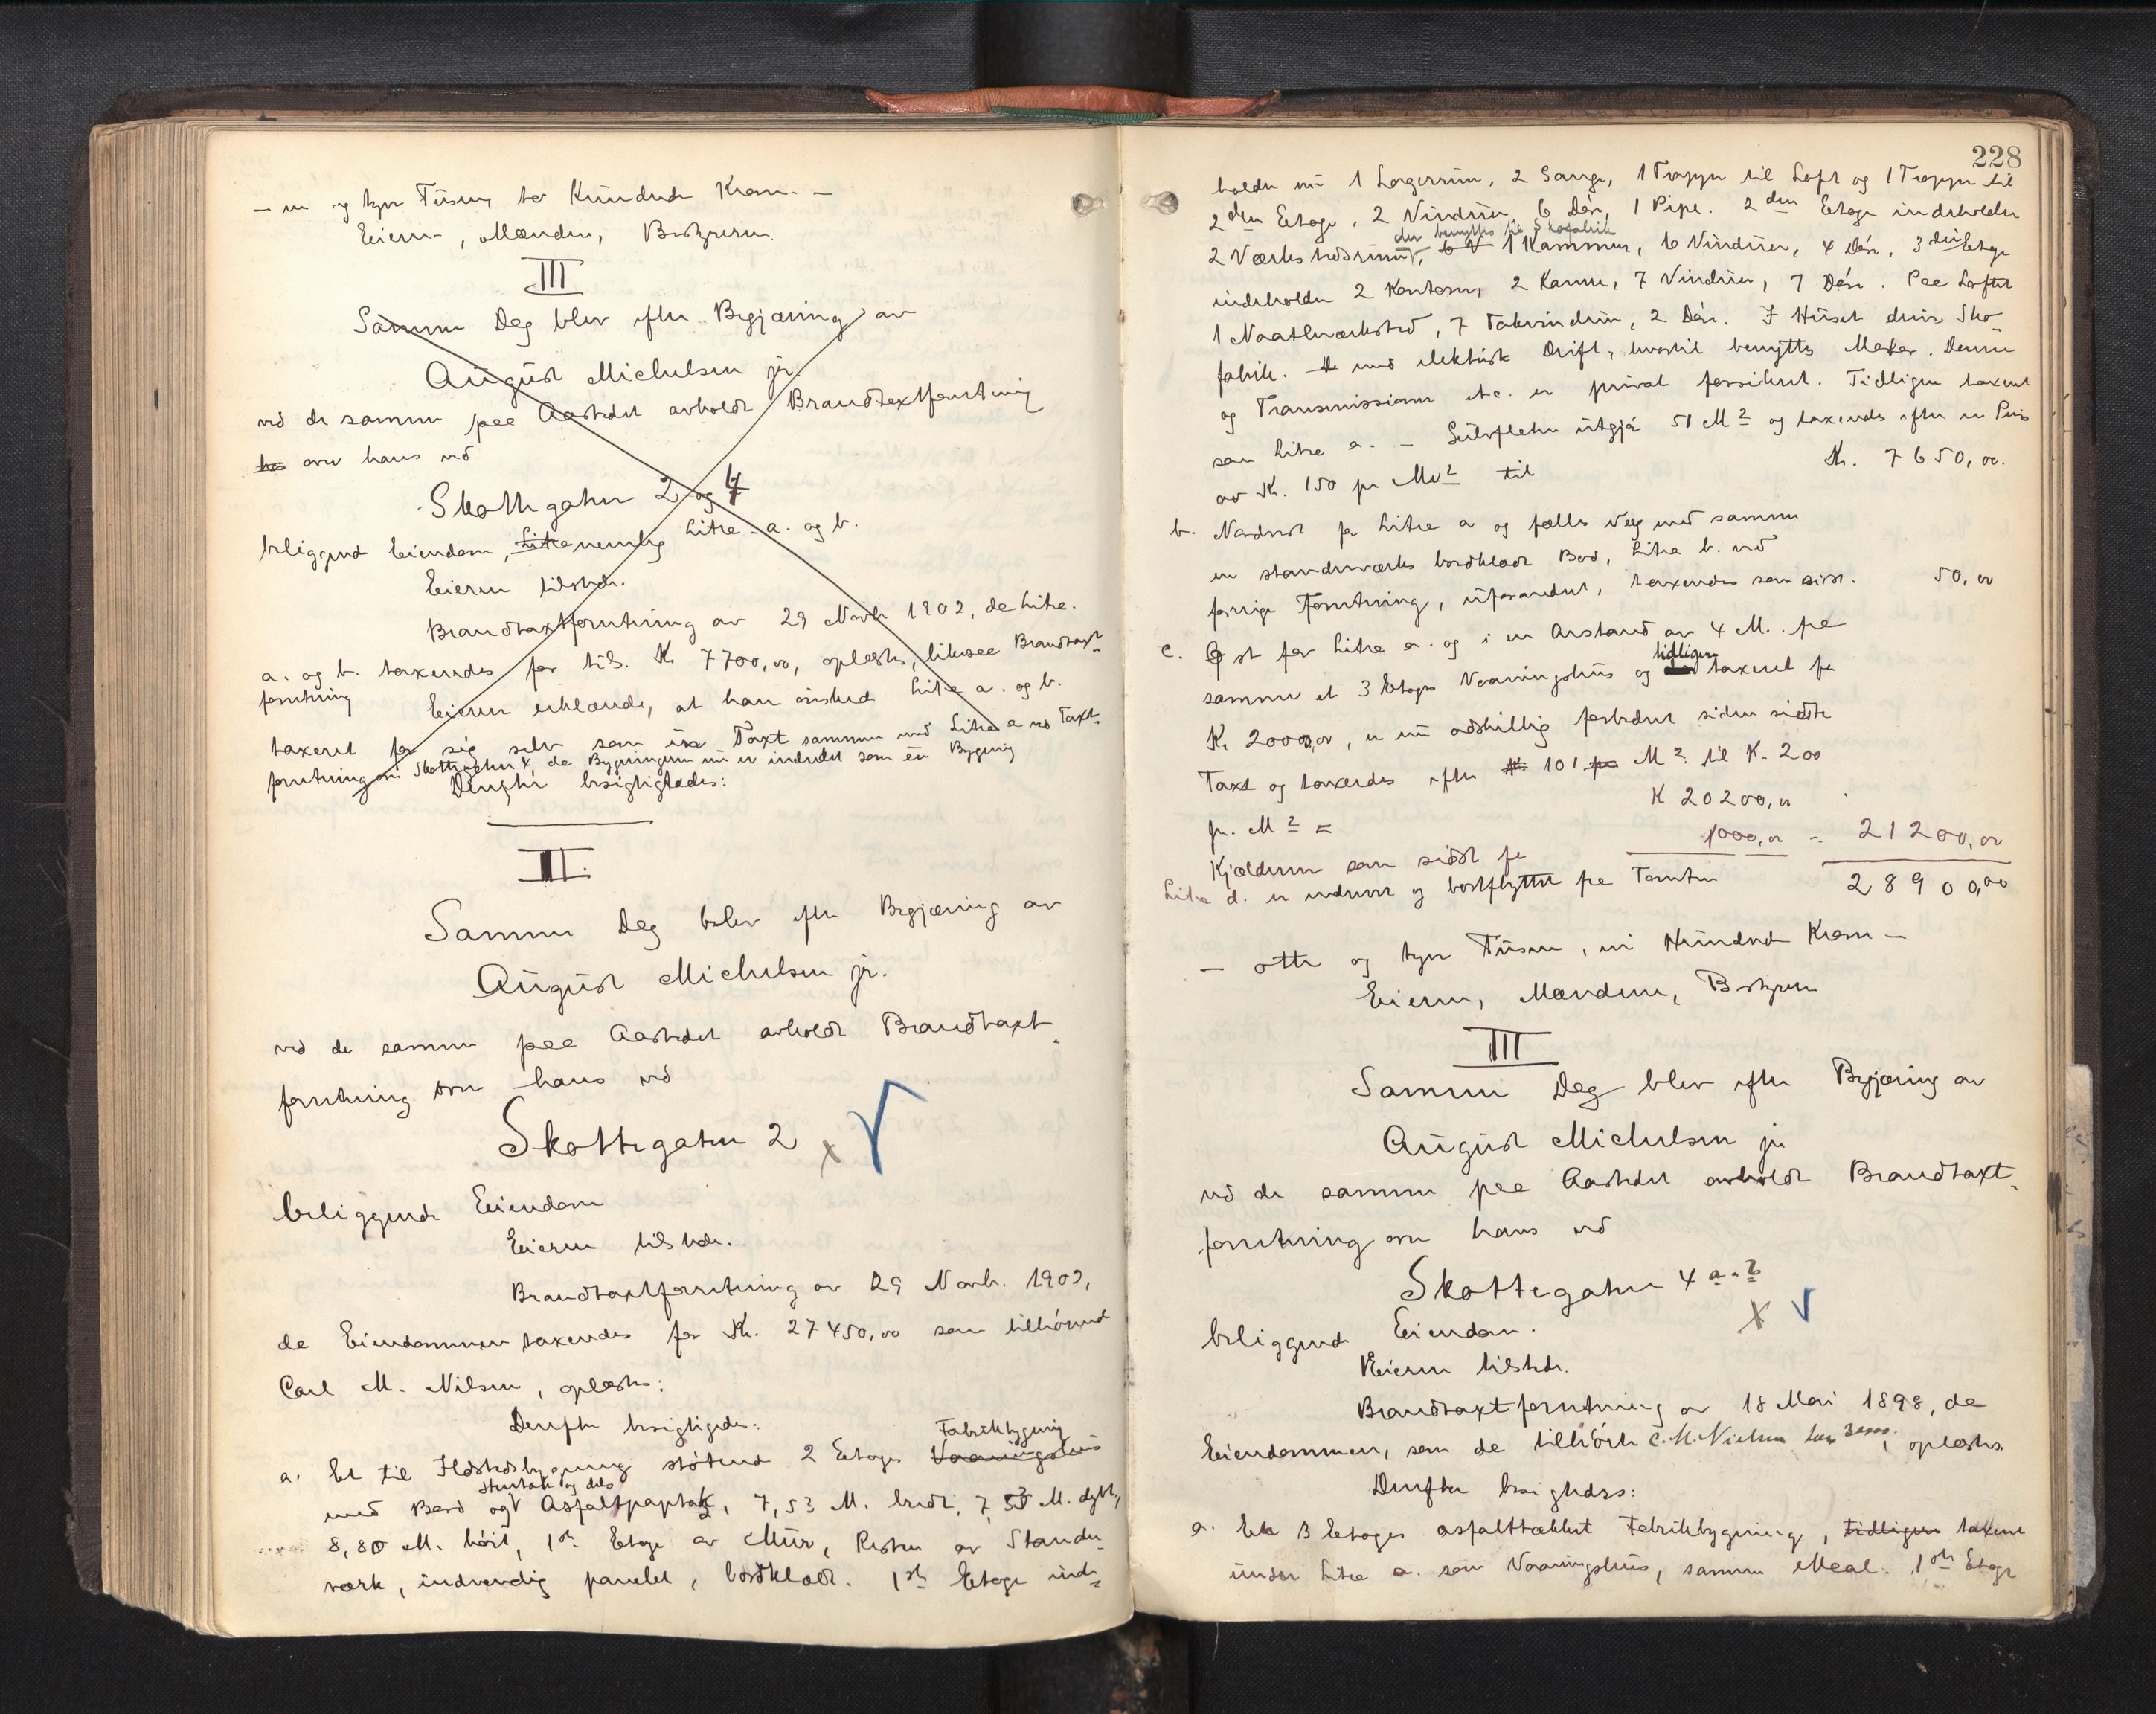 — en og tyve Tusen, to Hundrede Kroner. —
Eieren, Mændene, Bestyreren.
III
Samme Dag blev efter Begjæring av
August Michelsen jr.
ved de samme paa Aastedet avholdt Brandtaxtforretning
over hans ved
Skottegaten 2 og 4
beliggende Eiendom, Litra nemlig Litra a. og b.
Eieren tilstede.
Brandtaxtforretning av 29 Novb. 1902, da Litra
a. og b. taxeredes for tils. K. 7700,00, oplæstes, likesaa Brandtaxt-
forretning
Eieren erklærede, at han ønsked Litra a. og b.
taxeret for sig selv som en Taxt sammen med Litra a ved Taxt-
forretning om Skottegaten 4, da Bygningerne nu er indredet som en Bygning
Derefter besigtigedes:
II.
Samme Dag blev efter Begjæring av
August Michelsen jr.
ved de samme paa Aastedet avholdt Brandtaxt-
forretning over hans ved
Skottegaten 2 x
beliggende Eiendom
Eieren tilstede.
Brandtaxtforretning av 29 Novb. 1902,
da Eiendommen taxeredes for Kr. 27450,00 som tilhørende
Carl M. Nilsen, oplæstes:
Derefter besigtigedes:
Fabrikbygning
a. Et til Ildstedsbygning støtende 2 Etages Vaaningshus
stentak og dels
med Bord og Asfaltpaptak, 7,53 M. bredt, 7,53 M. dypt,
8,80 M. høit, 1ste Etage av Mur, Resten av Stender-
værk, indvendig panelet, bordklædt. 1ste Etage inde-
228
holder nu 1 Lagerrum, 2 Gange, 1 Trappe til Loft og 1 Trappe til
2den Etage, 2 Vinduer, 6 Døre, 1 Pipe. 2den Etage indeholder
der benyttes til Skofabrik
2 Værkstedsrum, 6 V 1 Kammer, 6 Vinduer, 4 Døre, 3die Etage
indeholder 2 Kontorer, 2 Kamre, 7 Vinduer, 7 Døre. Paa Loftet
1 Naatleværksted, 7 Takvinduer, 2 Døre. I Huset drives Sko-
fabrik med elektrisk Drift, hvortil benyttes Motor. Denne
og Transmissioner etc. er privat forsikret. Tidligere taxeret
som Litra a. — Gulvflaten utgjør 51 M2 og taxeredes efter en Pris
av Kr. 150 pr M2 til Kr. 7650,00.
b. Nordvest for Litra a og fælles Væg med samme
en stenderværks bordklædt Bod, Litra b. ved
forrige Forretning, uforandret, taxeredes som sidst. 50,00
c. Øst for Litra a. og i en Avstand av 4 M. fra
tidligere
samme et 3 Etages Vaaningshus og taxeret for
K. 20000,00, er nu adskillig forbedret siden sidste
Taxt og taxeredes efter 101 M2 til K. 200
pr. M2 = K 20200,00
Kjælderen som sidst for 1000,00 - 21200,00
Litra d. er nedrevet og bortflyttet fra Tomten 28900,00
— otte og tyve Tusen, ni Hundrede Kroner —
Eieren, Mændene, Bestyreren
III
Samme Dag blev efter Begjæring av
August Michelsen jr
ved de samme paa Aastedet avholdt Brandtaxt-
forretning over hans ved
Skottegaten 4 a.
x
beliggende Eiendom.
Eieren tilstede.
Brandtaxtforretning av 18 Mai 1898, da
Eiendommen, som da tilhørte C. M. Nielsen, oplæstes.
Derefter besigtedes:
a. En 3 Etages asfalttækket Fabrikbygning, tidligere taxeret
under Litra a. som Vaaningshus, samme Maal. 1ste Etage